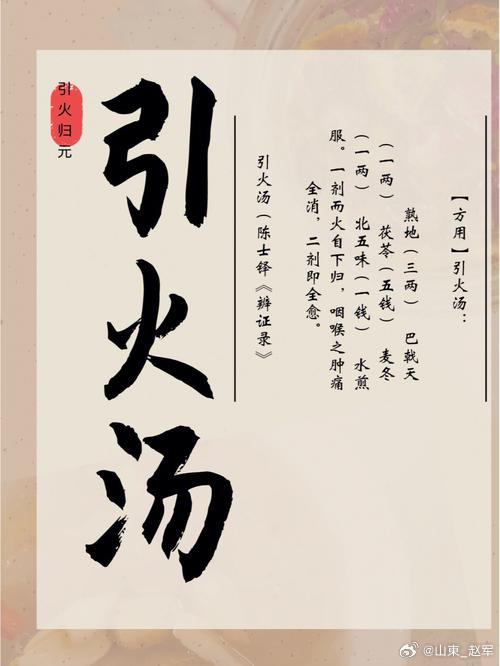 【方用】引火汤：
熟地（三两） 巴戟天
（一两） 茯苓（五钱） 麦冬
（一两） 北五味（一钱） 水煎
服。一剂而火自下归，咽喉之肿痛
全消，二剂即全愈。
引火汤（陈士铎《辨证录》）
引火归元
引火汤
@山東_赵军